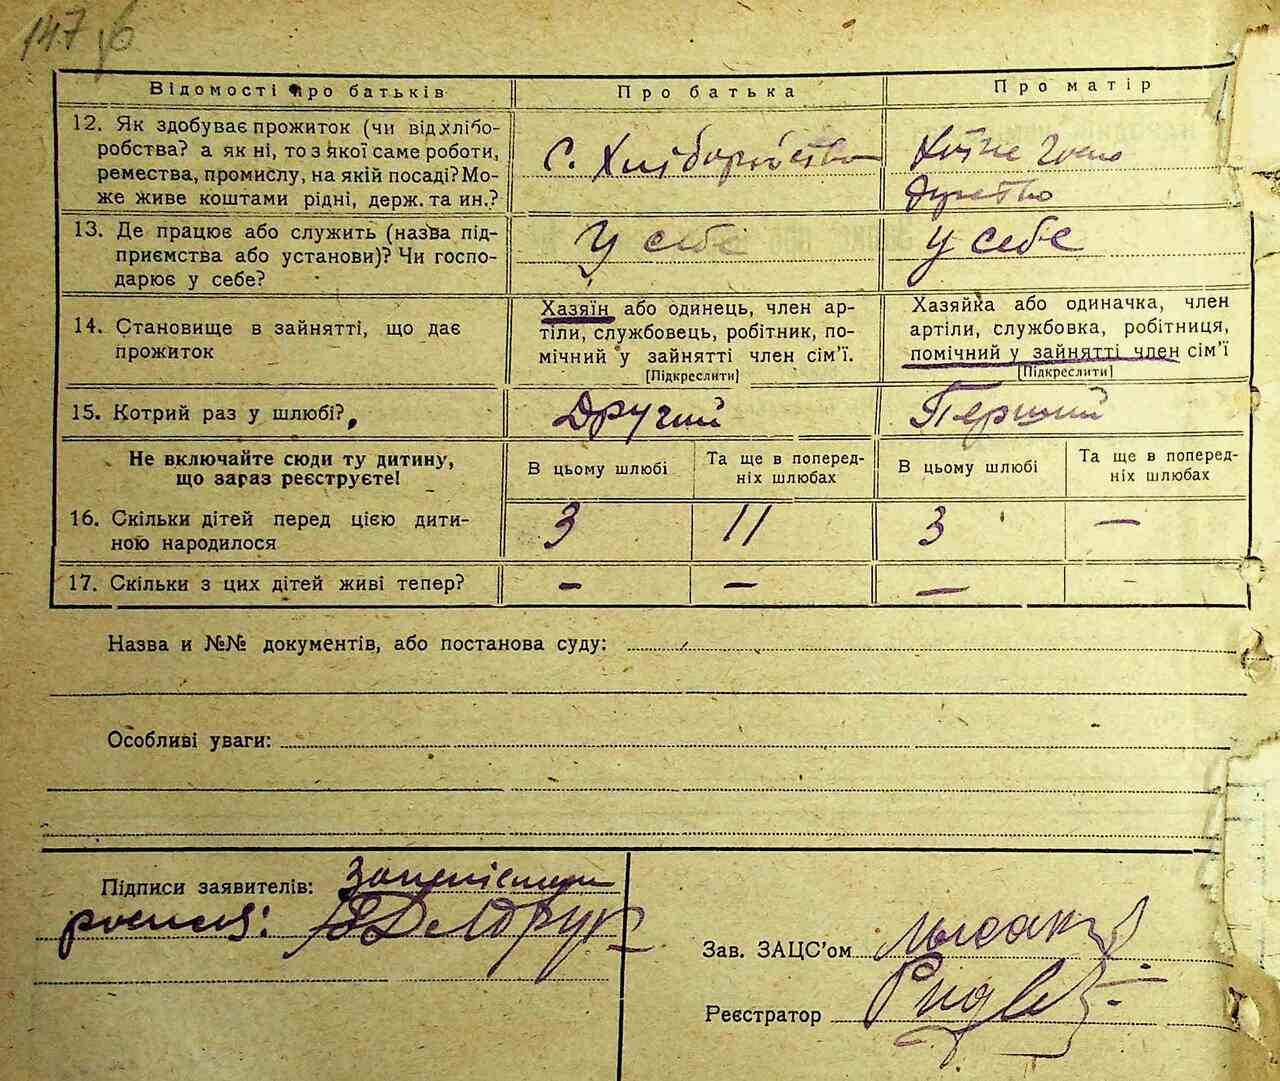 147 зв
Відомості про батьків
Про батька
Про матір
12. Як здобуває прожиток (чи від хлібо-
робства? а як ні, то з якої саме роботи,
ремества, промислу, на якій посаді? Мо-
же живе коштами рідні, держ. та ин.?
с. Хліборобство
Хатне госпо
дарство
13. Де працює або служить (назва під-
приємства або установи)? Чи госпо-
дарює у себе?
У себе
У себе
14. Становище в зайнятті, що дає
прожиток
Хазяїн або одинець, член ар-
тіли, службовець, робітник, по-
мічний у зайнятті член сім'ї.
[Підкреслити]
Хазяйка або одиначка, член
артіли, службовка, робітниця,
помічний у зайнятті член сім'ї
[Підкреслити]
15. Котрий раз у шлюбі?
Другий
Перший
Не включайте сюди ту дитину,
що зараз реєструєте!
В цьому шлюбі
Та ще в поперед-
ніх шлюбах
В цьому шлюбі
Та ще в поперед-
ніх шлюбах
16. Скільки дітей перед цією дити-
ною народилося
3
11
3
—
17. Скільки з цих дітей живі тепер?
—
—
—
-
Назва и №№ документів, або постанова суду:
Особливі уваги:
Підписи заявителів:
Зав. ЗАЦС'ом
Реєстратор